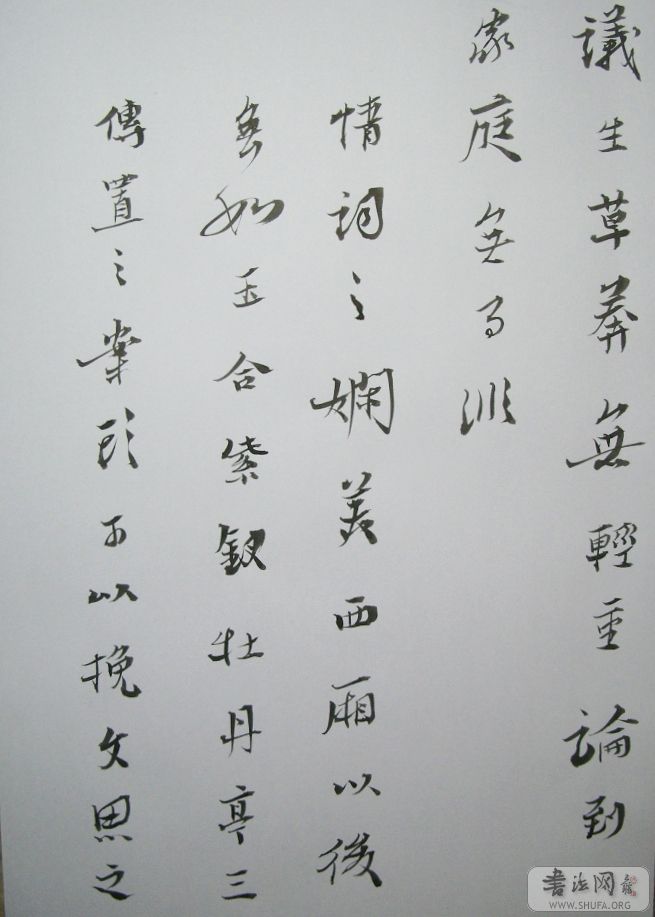 議生草莽無輕重論到
家庭無是非
情詞之嫻美西廂以後
無如玉合紫釵牡丹亭三
傳置之案頭可以挽文思之
書法网
WWW.SHUFA.ORG